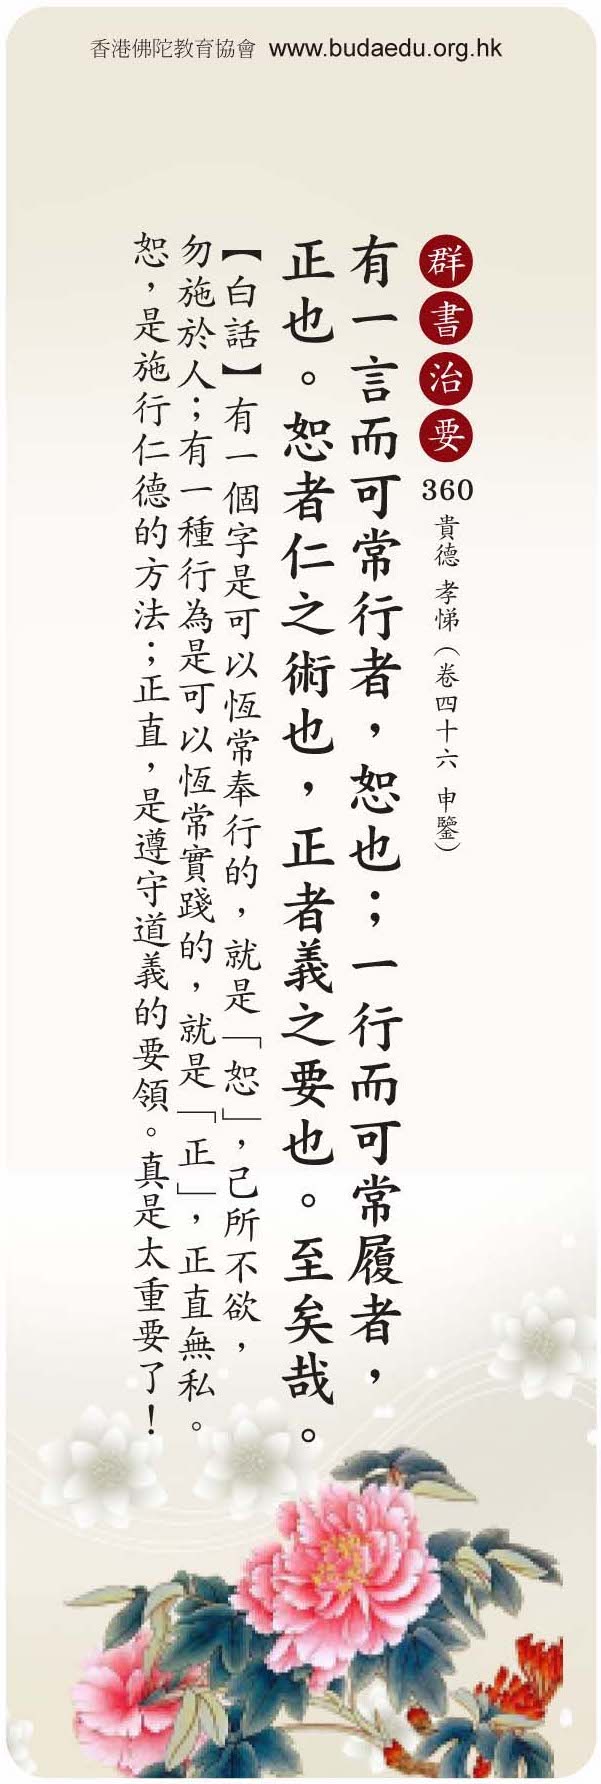 香港佛陀教育協會 www.budaedu.org.hk
群書治要 360 貴德 孝悌（卷四十六 申鑒）
有一言而可常行者，恕也；一行而可常履者，
正也。恕者仁之術也，正者義之要也。至矣哉。
【白話】有一個字是可以恆常奉行的，就是「恕」，己所不欲，
勿施於人；有一種行為是可以恆常實踐的，就是「正」，正直無私。
恕，是施行仁德的方法；正直，是遵守道義的要領。真是太重要了！